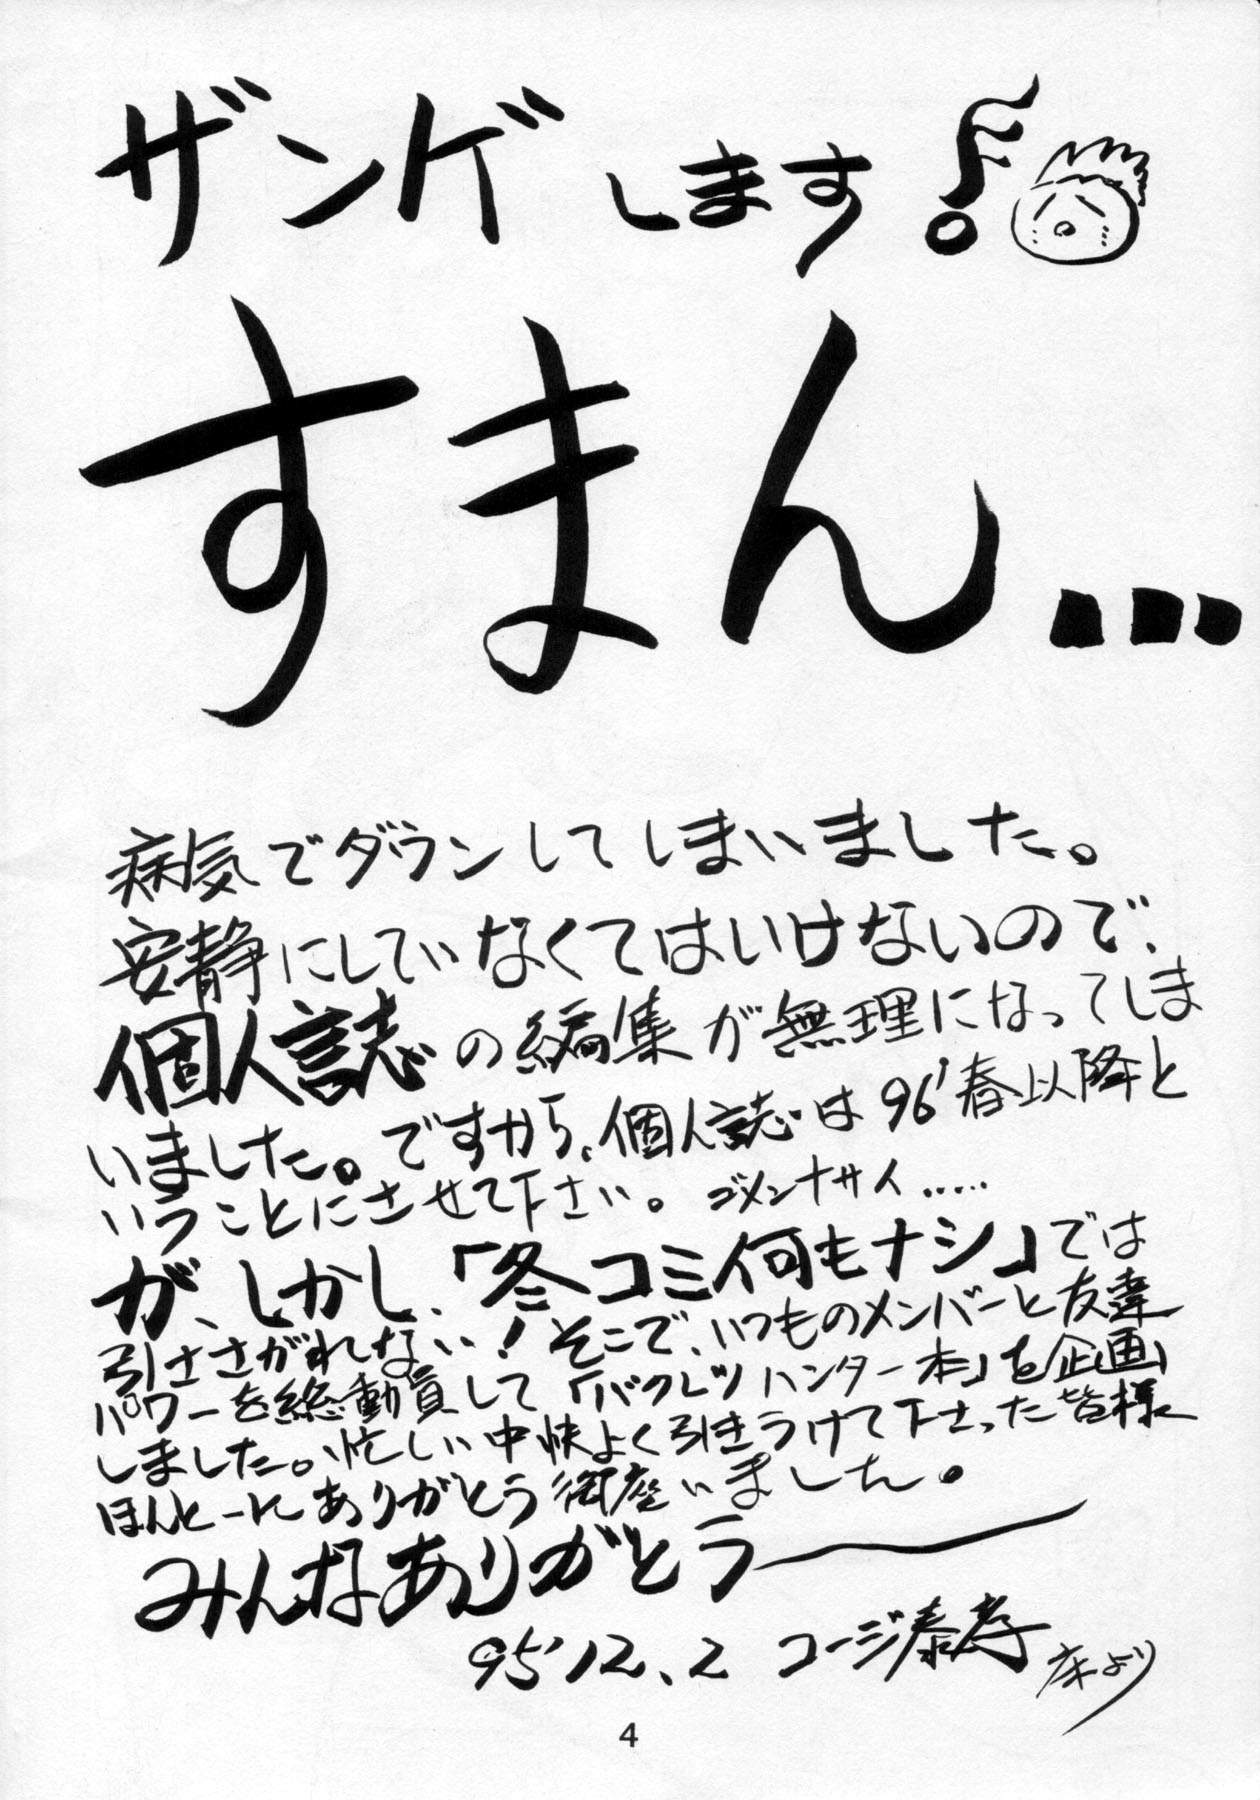 ザンゲします
すまん…
病気でダウンしてしまいました。
安静にしていなくてはいけないので、
個人誌の編集が無理になってしま
いました。ですから、個人誌は96'春以降と
いうことにさせて下さい。ゴメンナサイ.....
が、しかし、「冬コミ何もナシ」では
引きさがれない!そこで、いつものメンバーと友達
パワーを総動員して「バクレツハンター本」を企画
しました。忙しい中快よく引きうけて下さった皆様
ほんとーにありがとう御座いました。
みんなありがとうー
95'12.2 コージ泰孝 床より
4